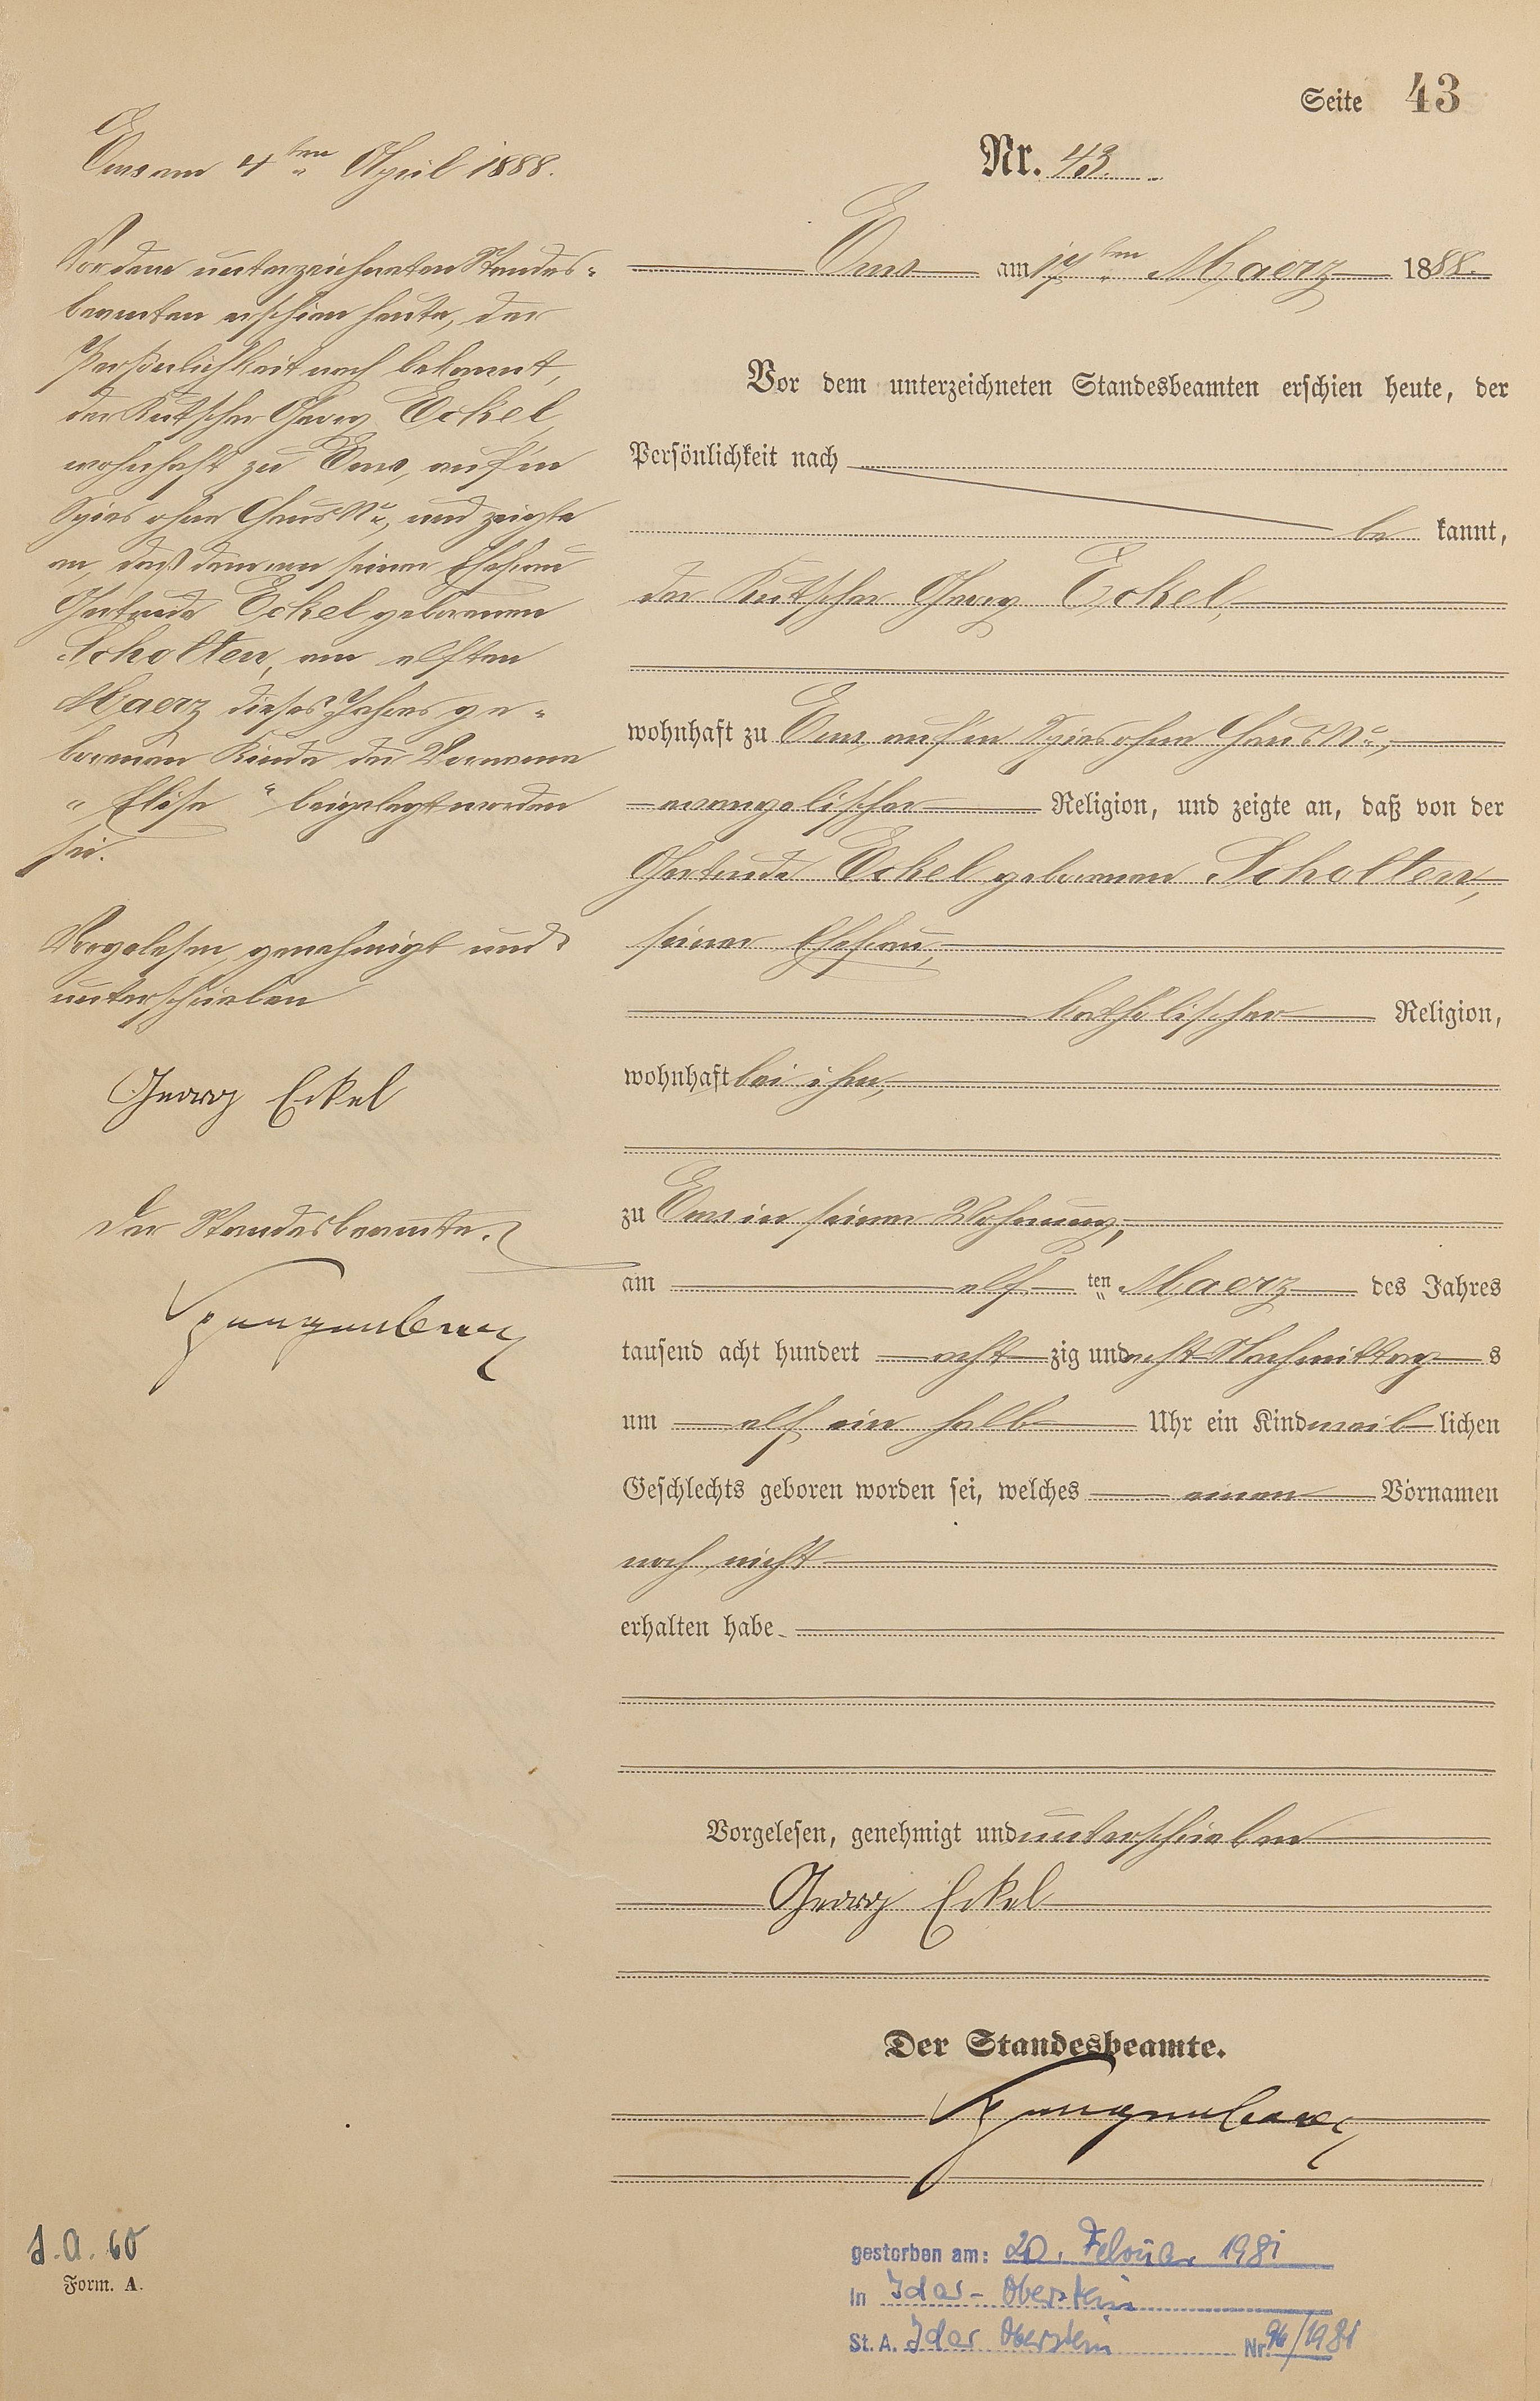 Seite 43
Nr. 43.
Ems am 17ten Maerz 1888.
Vor dem unterzeichneten Standesbeamten erschien heute, der
Persönlichkeit nach
be kannt,
der Kutscher Georg Eckel,
wohnhaft zu Ems, auf'm Spies ohne Haus No,
evangelischer Religion, und zeigte an, daß von der
Gertrude Eckel geborenen Scholten,
seiner Ehefrau,
katholischer Religion,
wohnhaft bei ihm,
zu Ems in seiner Wohnung,
am elf ten Maerz des Jahres
tausend acht hundert acht zig und acht Nachmittag s
um elf ein halb Uhr ein Kind weib lichen
Geschlechts geboren worden sei, welches einen Vornamen
noch nicht
erhalten habe.
Vorgelesen, genehmigt und unterschrieben
Georg Eckel
Der Standesbeamte.
Spangenberg
Ems am 4ten April 1888.
Vor dem unterzeichneten Standes-
beamten erschien heute, der
Persönlichkeit nach bekannt,
der Kutscher Georg Eckel,
wohnhaft zu Ems, auf'm
Spies ohne Haus No, und zeigte
an, daß dem von seiner Ehefrau
Gertrude Eckel geborenen
Scholten, am elften
Maerz dieses Jahres ge-
borenen Kinde der Vorname
"Elise" beigelegt worden
sei.
Vorgelesen, genehmigt und
unterschrieben
Georg Eckel
Der Standesbeamte.
Spangenberg
gestorben am: 20. Februar 1981
in Idar-Oberstein
St. A. Idar Oberstein Nr. 96/1981
Form. A.